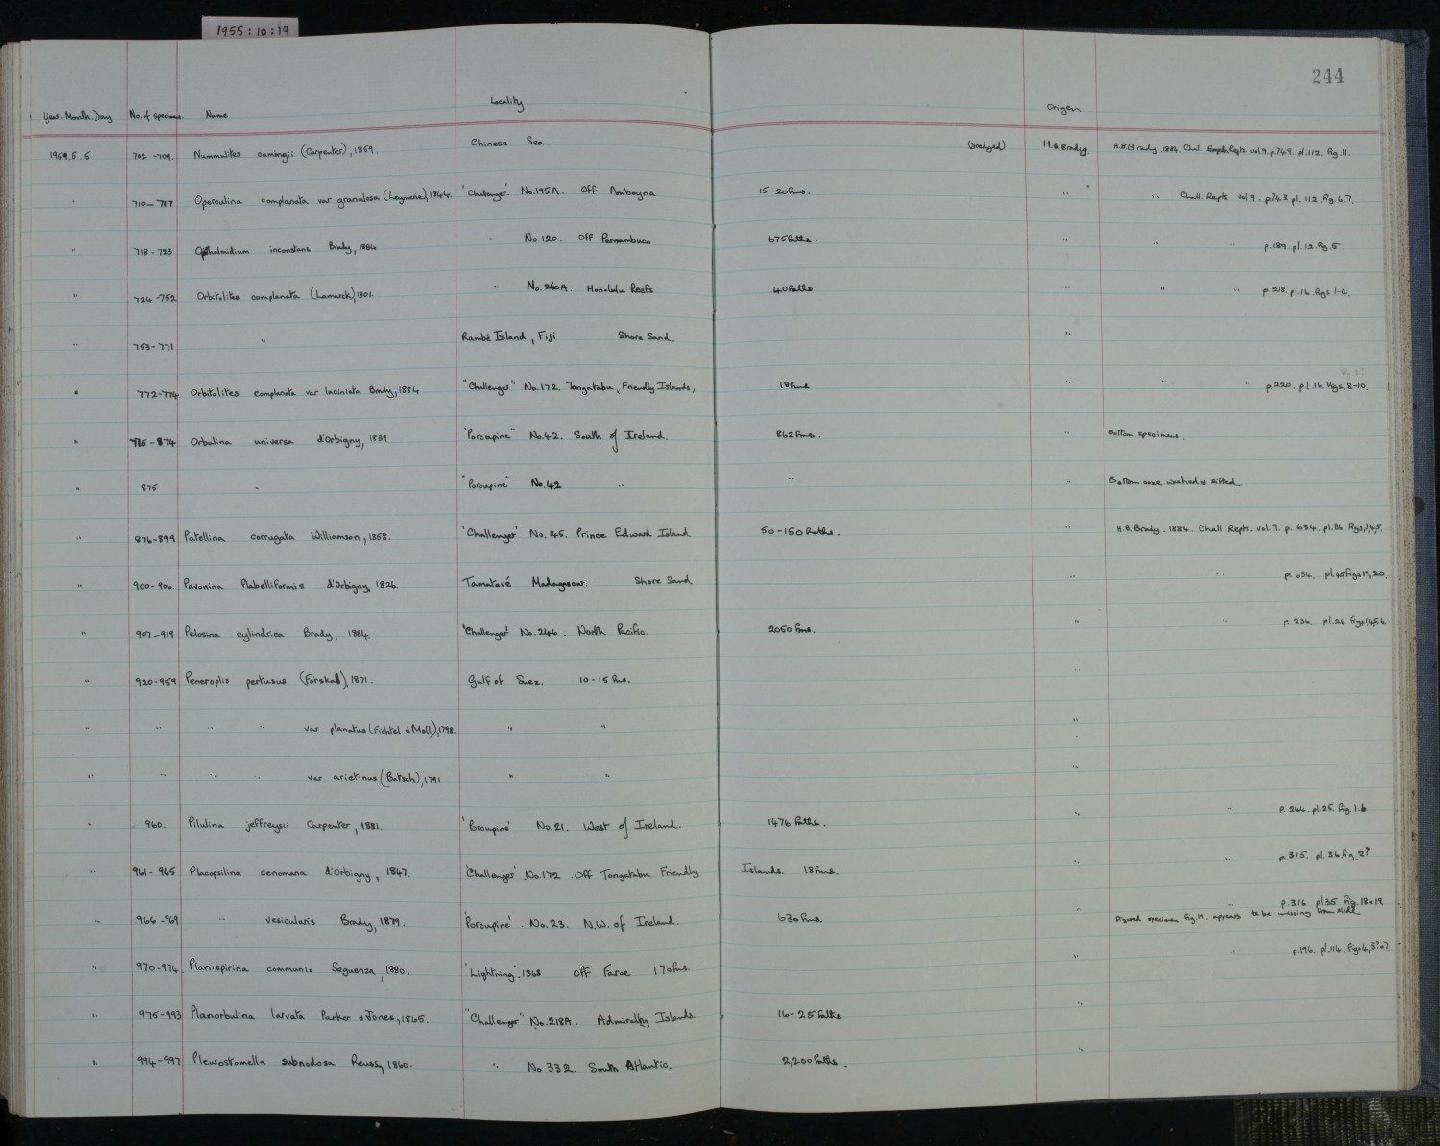 1955:10:19
244
Year. Month. Day No. of specimens. Name Locality Origin
1959.5.5 702 -709. Nummulites cumingii (Carpenter), 1859. Chinese Sea (Dredged) H.B. Brady. H.B. Brady. 1884. Chal. Repts vol. 9. p. 749. pl. 112. fig. 11.
" 710-717 Operculina complanata var granulosa (Leymerie), 1846. 'Challenger'. No. 195A. Off Amboyna 15-20 fms. " " Chall. Repts vol 9. p. 743 pl. 112 fig. 6.7.
" 718-723 Opthalmidium inconstans Brady, 1884 " No 120. Off Pernambuco 675 faths. " " " p. 189. pl. 12. fig. 5
" 724-752 Orbitolites complanata (Lamarck), 1801. " No. 260A. Honolulu Reefs 40 faths " " " p. 218. p. 16. figs 1-6.
" 753-771 " Rambé Island, Fiji Shore Sand. "
" 772-774 Orbitolites complanata var laciniata Brady, 1884 "Challenger" No. 172. Tongatabu, Friendly Islands, 18 fms " " " p. 220. pl. 16. figs. 8-10.
" 775-874 Orbulina universa d'Orbigny, 1839 "Porcupine" No. 42. South of Ireland. 862 fms. " Bottom specimens.
" 875 " "Porcupine" No. 42 " " " Bottom ooze washed & sifted.
" 876-899 Patellina corrugata Williamson, 1858. 'Challenger' No. 145. Prince Edward Island 50-150 faths. " H.B. Brady. 1884. Chall Repts. vol. 9. p. 634. pl. 86
" 900-906. Pavonina flabelliformis d'Orbigny, 1826. Tamatavé Madagascar. Shore Sand " "
" 907-919 Pelosina cylindrica Brady, 1884. 'Challenger' No. 246. North Pacific. 2050 fms. " " p. 236. pl. 26
" 920-959 Peneroplis pertusus (Forskal), 1871. Gulf of Suez. 10-15 fms. "
" " " " var planatus (Fichtel & Moll), 1798. " " "
" " " " var arietinus (Batsch), 1791 " " "
" 960. Pilulina jeffreysii Carpenter, 1881. 'Porcupine' No. 21. West of Ireland. 1476 faths. " " p. 244. pl. 25. fig. 1.6
" 961-965 Placopsilina cenomana d'Orbigny, 1847. 'Challenger'. No. 172. Off Tongatabu Friendly Islands. 18 fms. " " p. 315. pl. 36. fig. 2?
" 966-969 " vesicularis Brady, 1879. 'Porcupine'. No. 23. N.W. of Ireland. 630 fms. " " p. 316 pl 35. fig. 18 & 19
Figured specimen fig. 19. appears to be missing from slide
" 970-974. Planispirina communis Seguenza, 1880. 'Lightning'. 1868 off Faroe 170 fms. " " p. 196. pl. 114.
" 975-993 Planorbulina larvata Parker & Jones, 1865. "Challenger" No. 218A. Admiralty Islands 16-25 faths "
" 994-997 Pleurostomella subnodosa Reuss, 1860. " No 332. South Atlantic. 2,200 faths. "